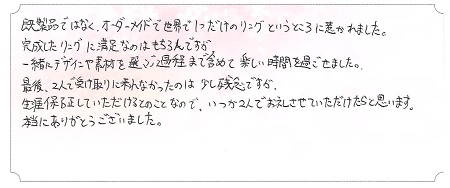 既製品ではなく、オーダーメイドで世界で1つだけのリングというところに惹かれました。
完成したリングに満足なのはもちろんですが
一緒にデザインや素材を選ぶ過程まで含めて楽しい時間を過ごせました。
最後、2人で受け取りに来れなかったのは少し残念ですが、
生涯保証していただけるとのことなので、いつか2人でおじゃさせていただけたらと思います。
本当にありがとうございました。